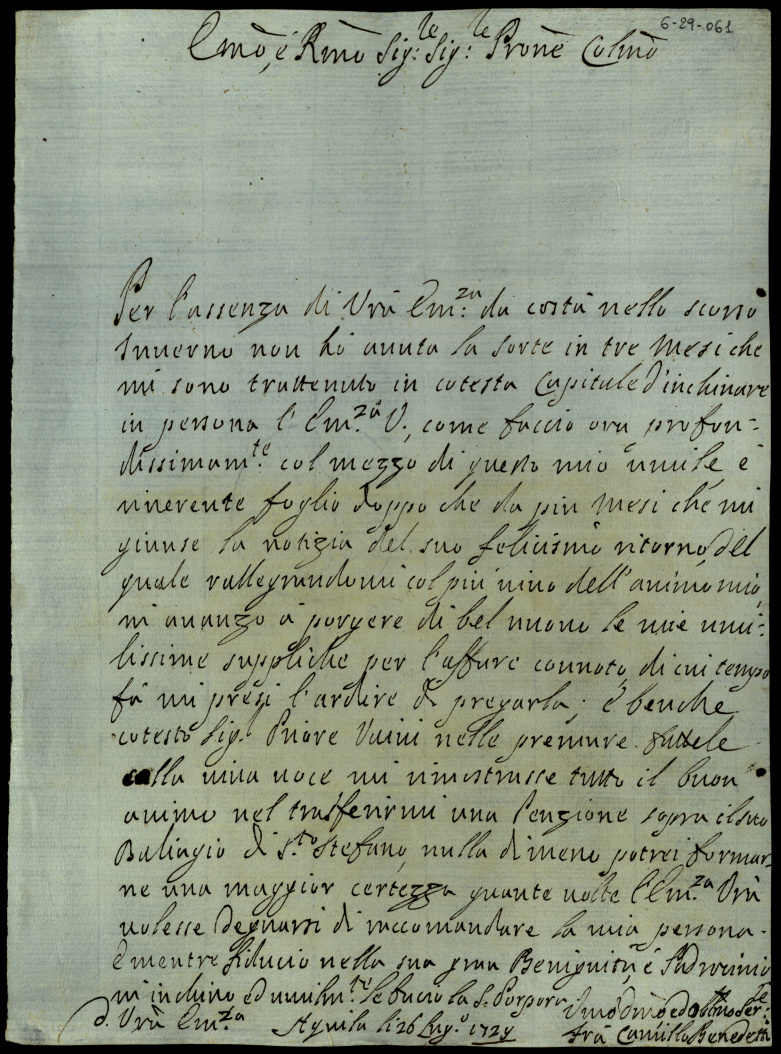 6-29-061
Emõ, é Rmõ Sig:le Sig:le Prõne Colmõ
Per l'assenza di Vrã Em:za da costà nello scorso
Inuerno non hò auuta la sorte in tre Mesi che
mi sono trattenuto in cotesta Capitale d'inchinare
in persona l'Em:za V., come faccio ora profon=
dissimam:te col mezzo di questo mio umile é
riuerente foglio doppo che da più Mesi che mi
giunse la notizia del suo felicismo ritorno, del
quale rallegrandomi col più uiuo dell'animo mio,
mi auanzo à porgere di bel nuouo le mie umi=
lissime suppliche per l'affare connoto, di cui tempo
fà mi presi l'ardire di pregarla; é benche
cotesto Sig:r Priore Vaini nelle premure fattele
colla uiua uoce mi rimostrasse tutto il buon
animo nel trasferirmi una Penzione sopra il suo
Baliagio di S:to Stefano, nulla di meno potrei formar=
ne una maggior certezza quante uolte l'Em:za Vrã
uolesse degnarsi di raccomandare la mia persona.
E mentre fiducio nella sua gran Benignità, é Padrocinio
mi inchino ed umilm:te le bacio la S. Porpora
d. Vrã Em:za Aquila li 26 Lug:o 1729
Umõ Dmõ ed Obmo Ser:re
Frà Camillo Benedetti